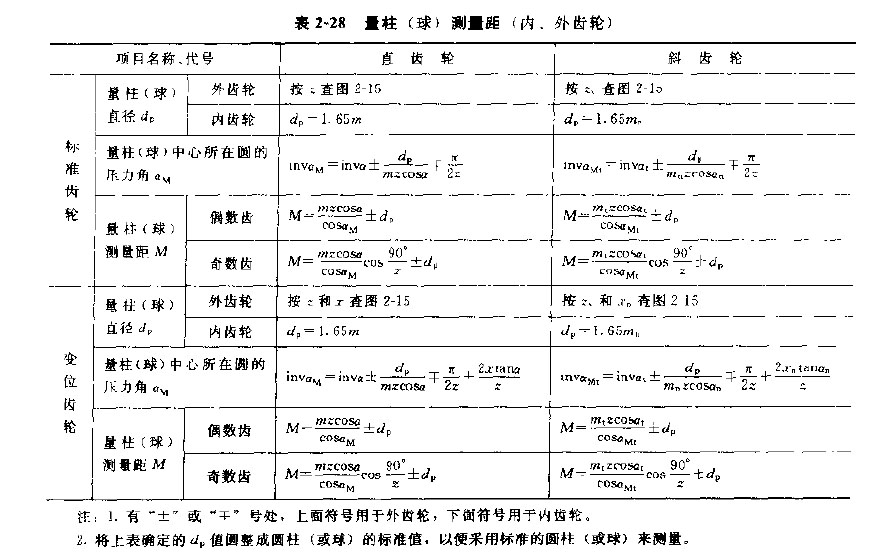 表 2-28 量柱（球）测量距（内、外齿轮）
项目名称、代号 直 齿 轮 斜 齿 轮
标准齿轮
量柱（球）直径 dp 外齿轮 按 z 查图 2-15 按 z、查图 2-15
内齿轮 dp=1.65m dp=1.65mn
量柱（球）中心所在圆的压力角 αM invαM=invα±dp/(mzcosα)∓π/(2z) invαMt=invαt±dp/(mnzcosαn)∓π/(2z)
量柱（球）测量距 M 偶数齿 M=mzcosα/cosαM±dp M=mtzcosαt/cosαMt±dp
奇数齿 M=mzcosα/cosαM cos 90°/z±dp M=mtzcosαt/cosαMt cos 90°/z±dp
变位齿轮
量柱（球）直径 dp 外齿轮 按 z 和 x 查图 2-15 按 z、和 xn 查图 2-15
内齿轮 dp=1.65m dp=1.65mn
量柱（球）中心所在圆的压力角 αM invαM=invα±dp/(mzcosα)∓π/(2z)+2xtanα/z invαMt=invαt±dp/(mnzcosαn)∓π/(2z)+2xntanαn/z
量柱（球）测量距 M 偶数齿 M=mzcosα/cosαM±dp M=mtzcosαt/cosαMt±dp
奇数齿 M=mzcosα/cosαM cos 90°/z±dp M=mtzcosαt/cosαMt cos 90°/z±dp
注：1. 有“±”或“∓”号处，上面符号用于外齿轮，下面符号用于内齿轮。
2. 将上表确定的 dp 值圆整成圆柱（或球）的标准值，以便采用标准的圆柱（或球）来测量。